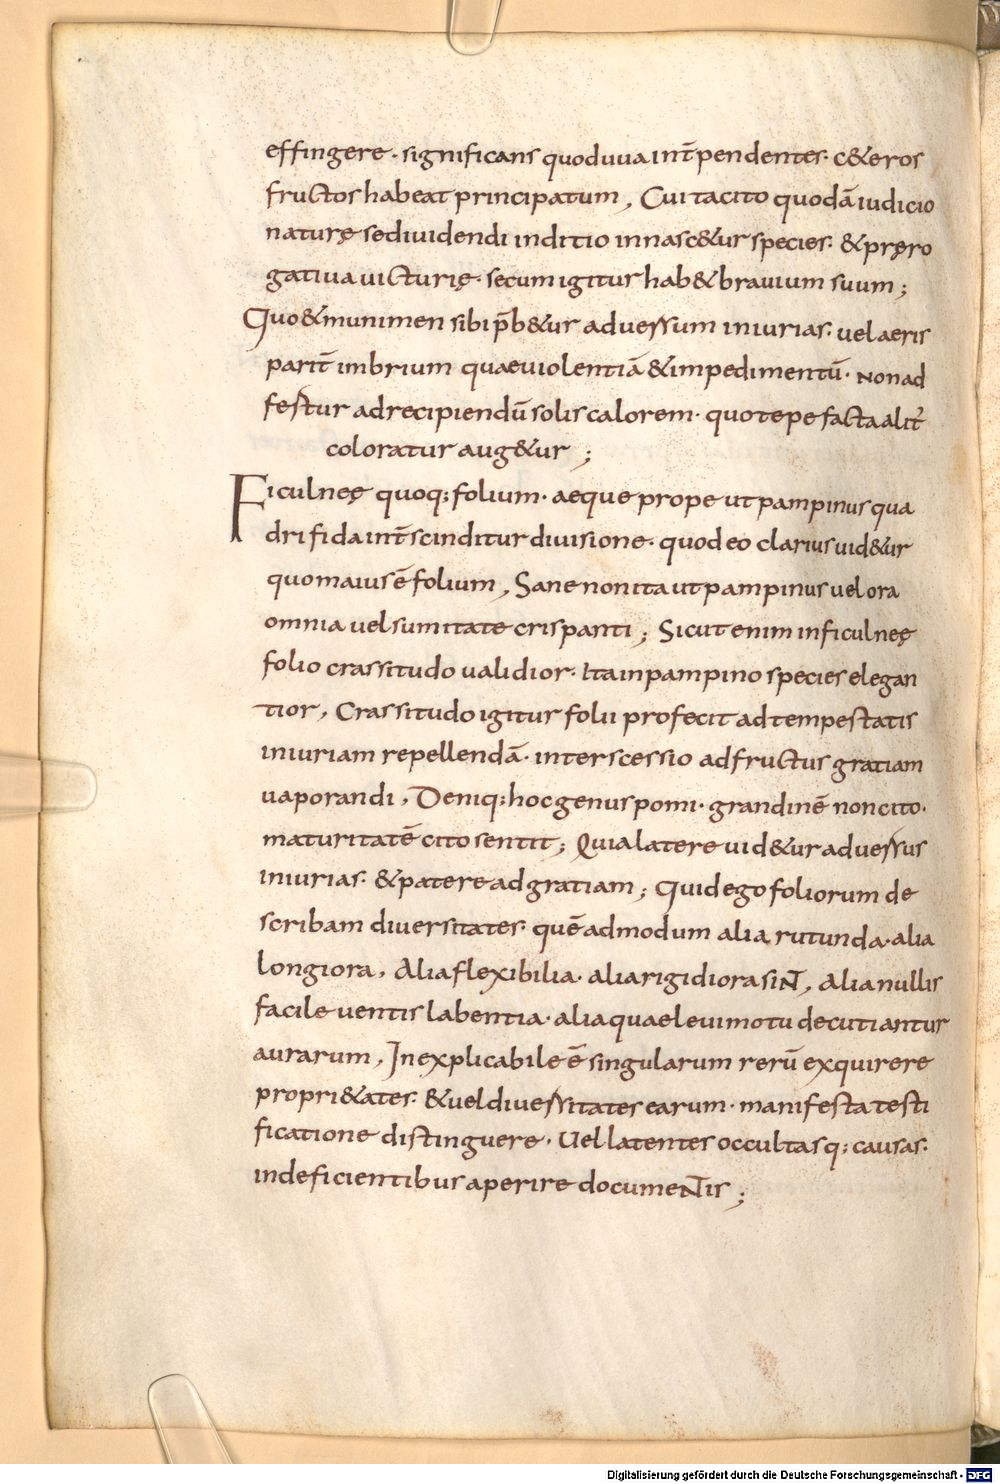 effingere · significans quoduuaint̄pendentes · c&eros
fructos habeat principatum, Cui tacito quodā iudicio
naturę sediuidendi inditio innasc&ur species · & pręro
gatiua uicturię · secum igitur hab& brauium suum;
Quo & munimen sibi p̄b&ur aduersum iniurias · uel aeris
parit̄ imbrium quaeuiolentiā & impedimentū · non ad
festur ad recipiendū solis calorem · quo tepefacta alit̄
coloratur aug&ur;
Ficulneę quoq; folium · aeque prope ut pampinus qua
drifida int̄scinditur diuisione · quod eo clarius uid&ur
quo maius ē folium, Sane non ita ut pampinus uel ora
omnia uel sumitate crispanti; Sicut enim in ficulneę
folio crassitudo ualidior · Ita in pampino species elegan
tior, Crassitudo igitur folii profecit ad tempestatis
iniuriam repellendā · interscessio ad fructus gratiam
uaporandi, Deniq; hoc genus pomi · grandinē non cito ·
maturitatē cito sentit; Quia latere uid&ur aduersus
iniurias · & patere ad gratiam; Quid ego foliorum de
scribam diuersitates · quē admodum alia rutunda · alia
longiora, Alia flexibilia · alia rigidiora sint, Alia nullis
facile uentis labentia · alia quae leui motu decutiantur
aurarum, Inexplicabile ē singularum rerū exquirere
propri&ates · & uel diuersitates earum · manifesta testi
ficatione distinguere · Uel latentes occultasq; causas ·
indeficientibus aperire documentis;
Digitalisierung gefördert durch die Deutsche Forschungsgemeinschaft - DFG